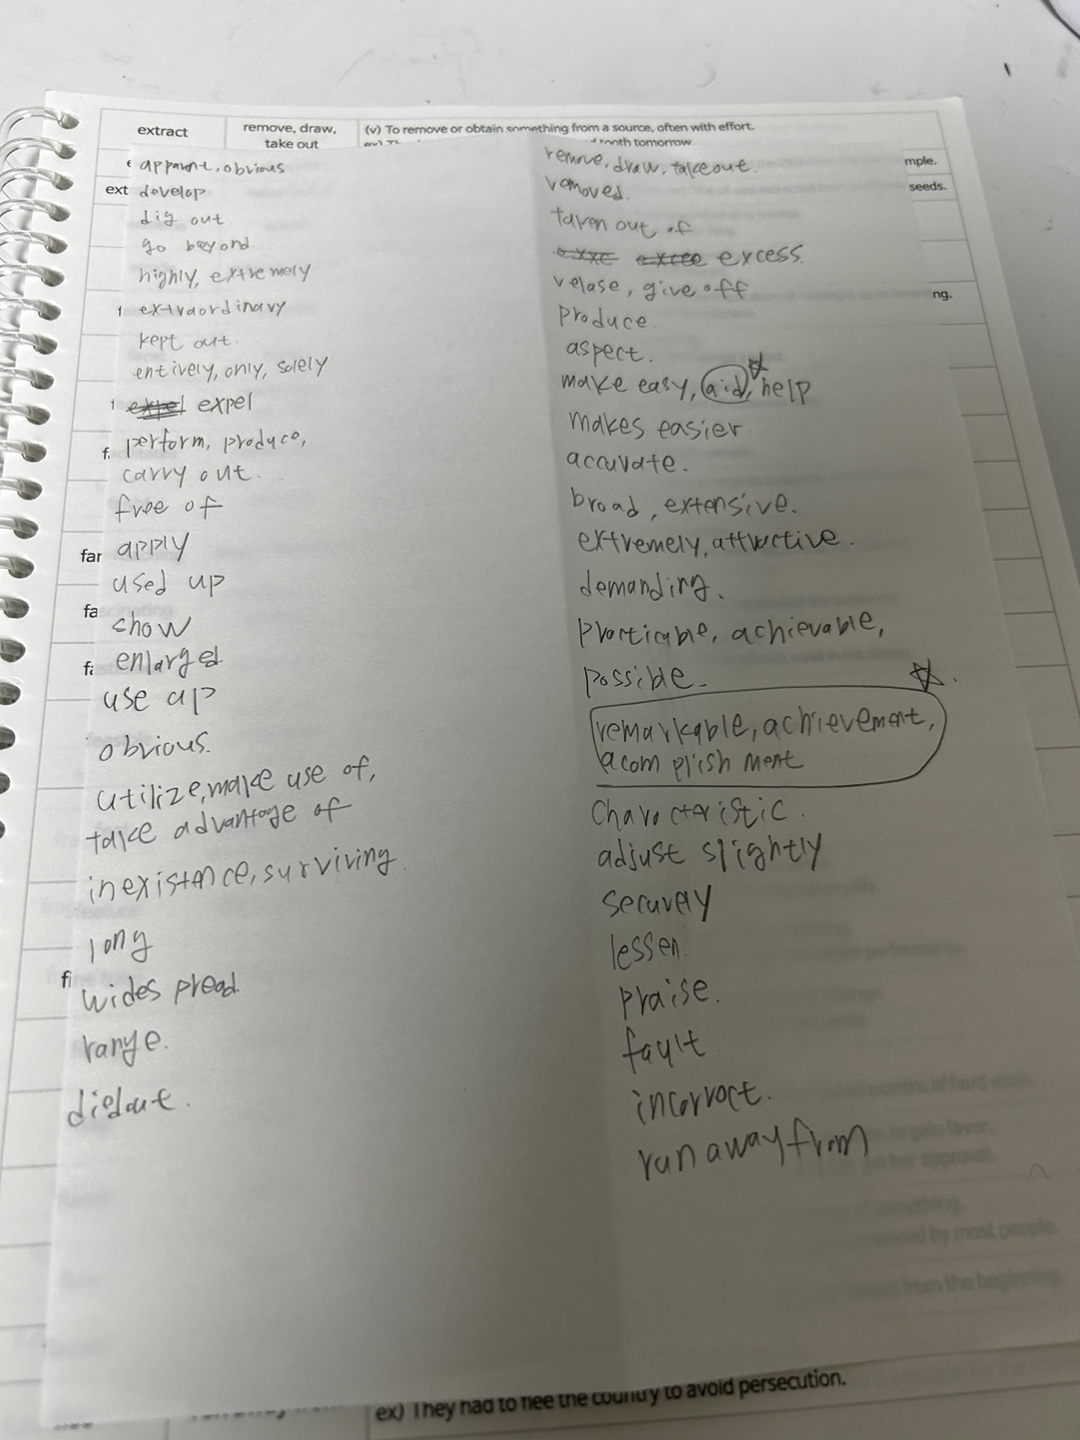 extract
remove, draw,
take out
(v) To remove or obtain something from a source, often with effort.
tomorrow
mple.
ext
seeds.
ng.
apparent, obvious
develop
dig out
go beyond
highly, extremely
extraordinary
kept out.
entirely, only, solely
expel expel
perform, produce,
carry out.
free of
apply
used up
show
enlarged
use up
obvious.
utilize, make use of,
take advantage of
in existence, surviving.
long
wides pread
range.
digout.
far
fa
remove, draw, takeout.
removed.
taken out of
exxc excee excess.
relase, give off
produce.
aspect.
make easy, aid, help
makes easier.
accurate.
broad, extensive.
extremely, attractive.
demanding.
practicable, achievable,
possible.
remarkable, achievement,
acom plish ment
characteristic.
adjust slightly
securely
lessen.
praise.
fault
incorrect.
run away from
months of hard work.
gain favor.
approval.
something.
by most people.
from the beginning
ex) They had to flee the country to avoid persecution.